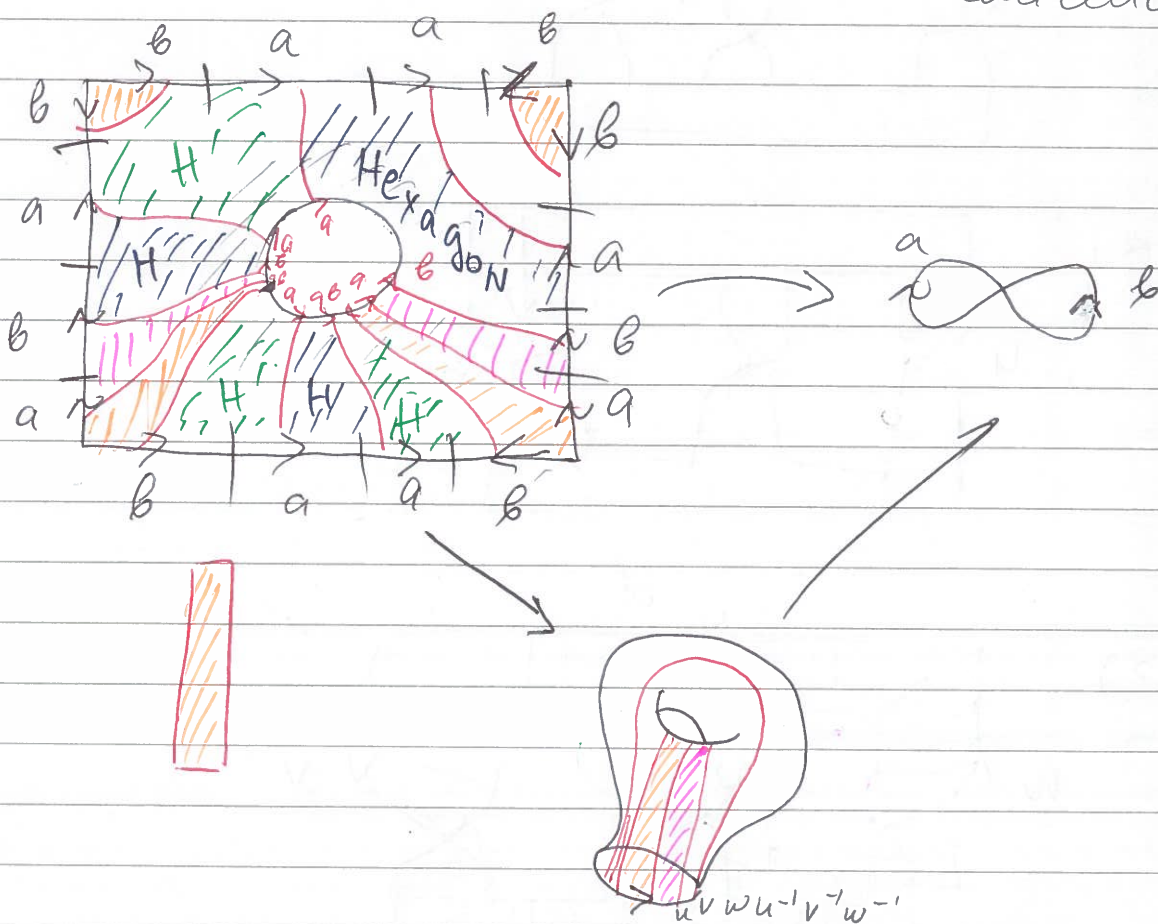 b a a b
b b
H
Hexagon
a a a
a H b a
a b
b a a b a b
a H H H a
b a a b
u v w u⁻¹ v⁻¹ w⁻¹